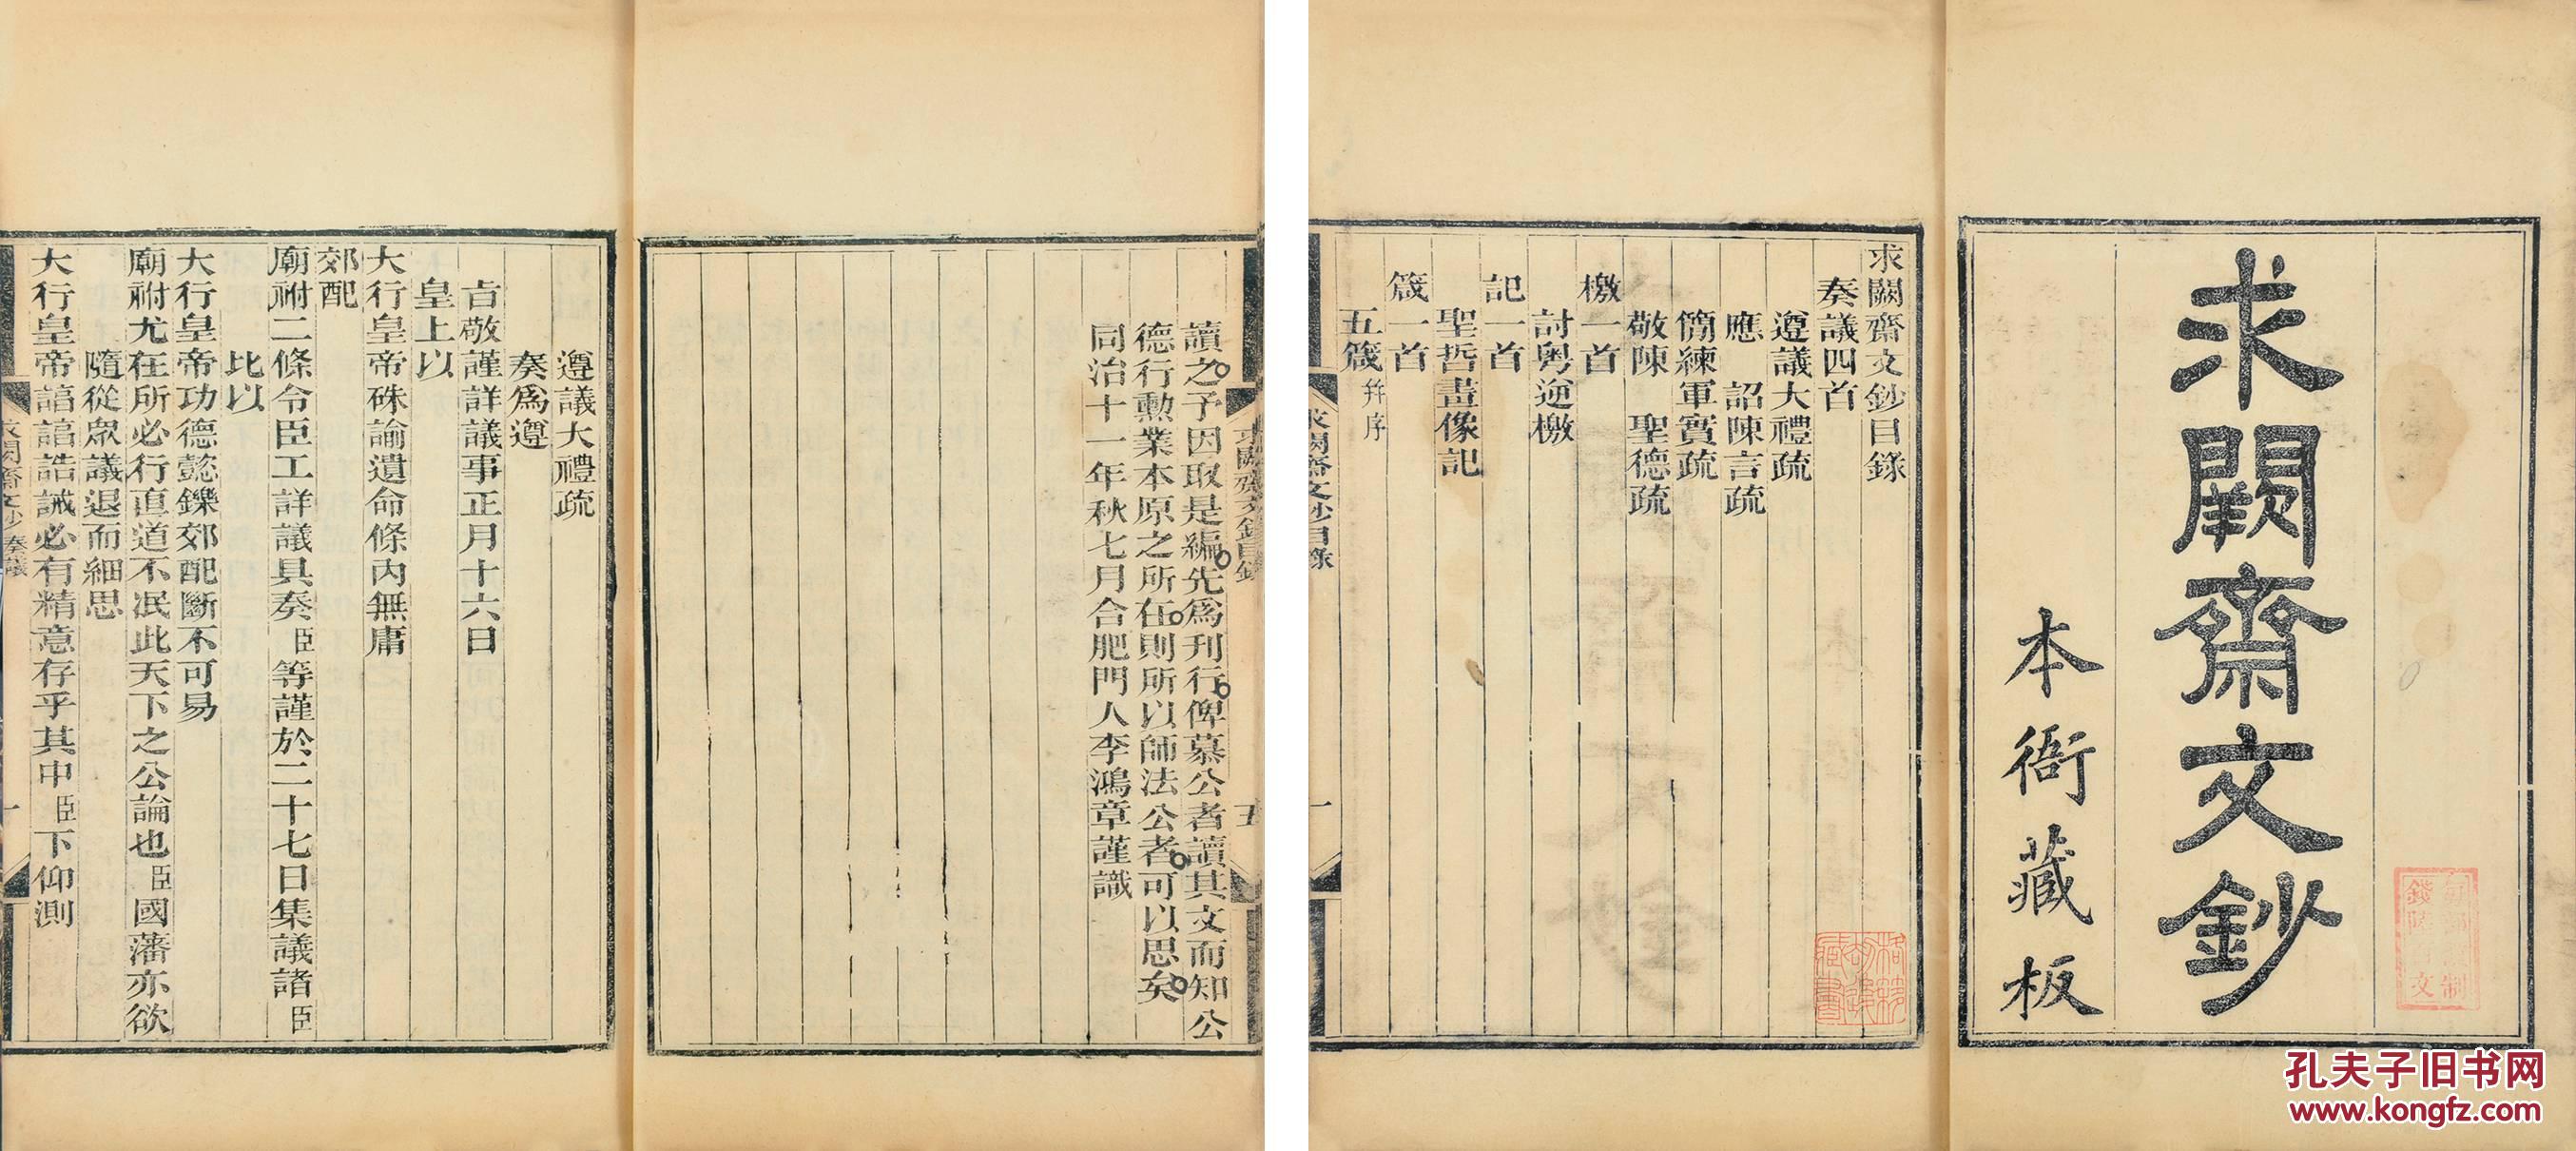 求闕齋文鈔
本衙藏板
求闕齋文鈔目錄
奏議四首
遵議大禮疏
應 詔陳言疏
簡練軍實疏
敬陳 聖德疏
檄一首
討粵逆檄
記一首
聖哲畫像記
箴一首
五箴 并序
求闕齋文鈔目錄 一
求闕齋文鈔目錄 五
讀之予因取是編先為刊行俾慕公者讀其文而知公
德行勳業本原之所在則所以師法公者可以思矣
同治十一年秋七月合肥門人李鴻章謹識
遵議大禮疏
奏為遵
旨敬謹詳議事正月十六日
皇上以
大行皇帝硃諭遺命條內無庸
郊配
廟祔二條令臣工詳議具奏臣等謹於二十七日集議諸臣
比以
大行皇帝功德懿鑠郊配斷不可易
廟祔尤在所必行直道不泯此天下之公論也臣國藩亦欲
隨從眾議退而細思
大行皇帝諄諄誥誡必有精意存乎其中臣下仰測
求闕齋文鈔 奏議 一
孔夫子旧书网
www.kongfz.com